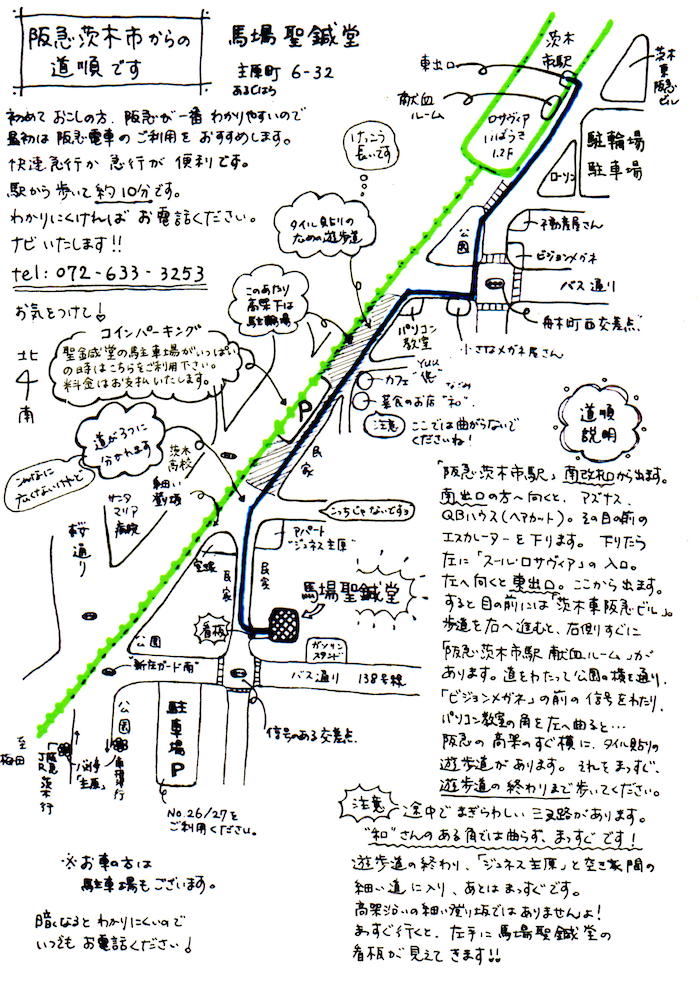 阪急茨木市からの
道順です
馬場聖鍼堂
主原町 6-32
あるじはら
初めて おこしの方、阪急が一番 わかりやすいので
最初は 阪急電車の ご利用を おすすめします。
快速急行か 急行が 便利です。
駅から 歩いて 約10分です。
わかりにくければ お電話ください。
ナビ いたします!!
tel: 072-633-3253
お気をつけて
北
南
茨木
市駅
東出口
献血
ルーム
ロサヴィア
いばらき
1.2F
茨木
東
阪急
ビル
駐輪場
駐車場
ローソン
公園
不動産屋さん
ビジョンメガネ
バス通り
舟木町西交差点
小さなメガネ屋さん
けっこう
長いです
タイル貼りの
ための遊歩道
このあたり
高架下は
駐輪場
パソコン
教室
カフェ
Yuu
"悠"
なごみ
菜食のお店"和"
注意
ここでは曲がらないで
くださいね!
コインパーキング
聖鍼堂の駐車場がいっぱい
の時はこちらをご利用下さい。
料金はお支払いたします。
P
道が3つに
分かれます
茨木
高校
細い
登り坂
サンタ
マリア
病院
桜通り
民家
こっちじゃないですヨ
アパート
"ジュネス主原"
空家
民家
民家
馬場聖鍼堂
看板
公園
ガソリン
スタンド
"新庄ガード南"
バス通り 138号線
信号のある交差点
至
梅田
公園
駐車場
P
バス停
「主原」
阪急
JR
茨木行
No.26/27を
ご利用ください。
※お車の方は
駐車場もございます。
暗くなると わかりにくいので
いつでも お電話ください!
道順
説明
「阪急茨木市駅」南改札から出ます。
南出口の方へ向くと、アズナス、
QBハウス(ヘアカット)。その目の前の
エスカレーターを下ります。下りたら
左に「スール・ロサヴィア」の入口。
左へ向くと東出口。ここから出ます。
すると目の前には「茨木東阪急ビル」。
歩道を右へ進むと、右側すぐに
「阪急茨木市駅 献血ルーム」が
あります。道をわたって公園の横を通り、
「ビジョンメガネ」の前の信号をわたり、
パソコン教室の角を左へ曲ると…
阪急の高架のすぐ横に、タイル貼りの
遊歩道があります。それをまっすぐ、
遊歩道の終わりまで歩いてください。
注意
途中でまぎらわしい三叉路があります。
"和"さんのある角では曲らず、まっすぐです!
遊歩道の終わり、「ジュネス主原」と空き家間の
細い道に入り、あとはまっすぐです。
高架沿いの細い登り坂ではありませんよ!
まっすぐ行くと、左手に馬場聖鍼堂の
看板が見えてきます!!